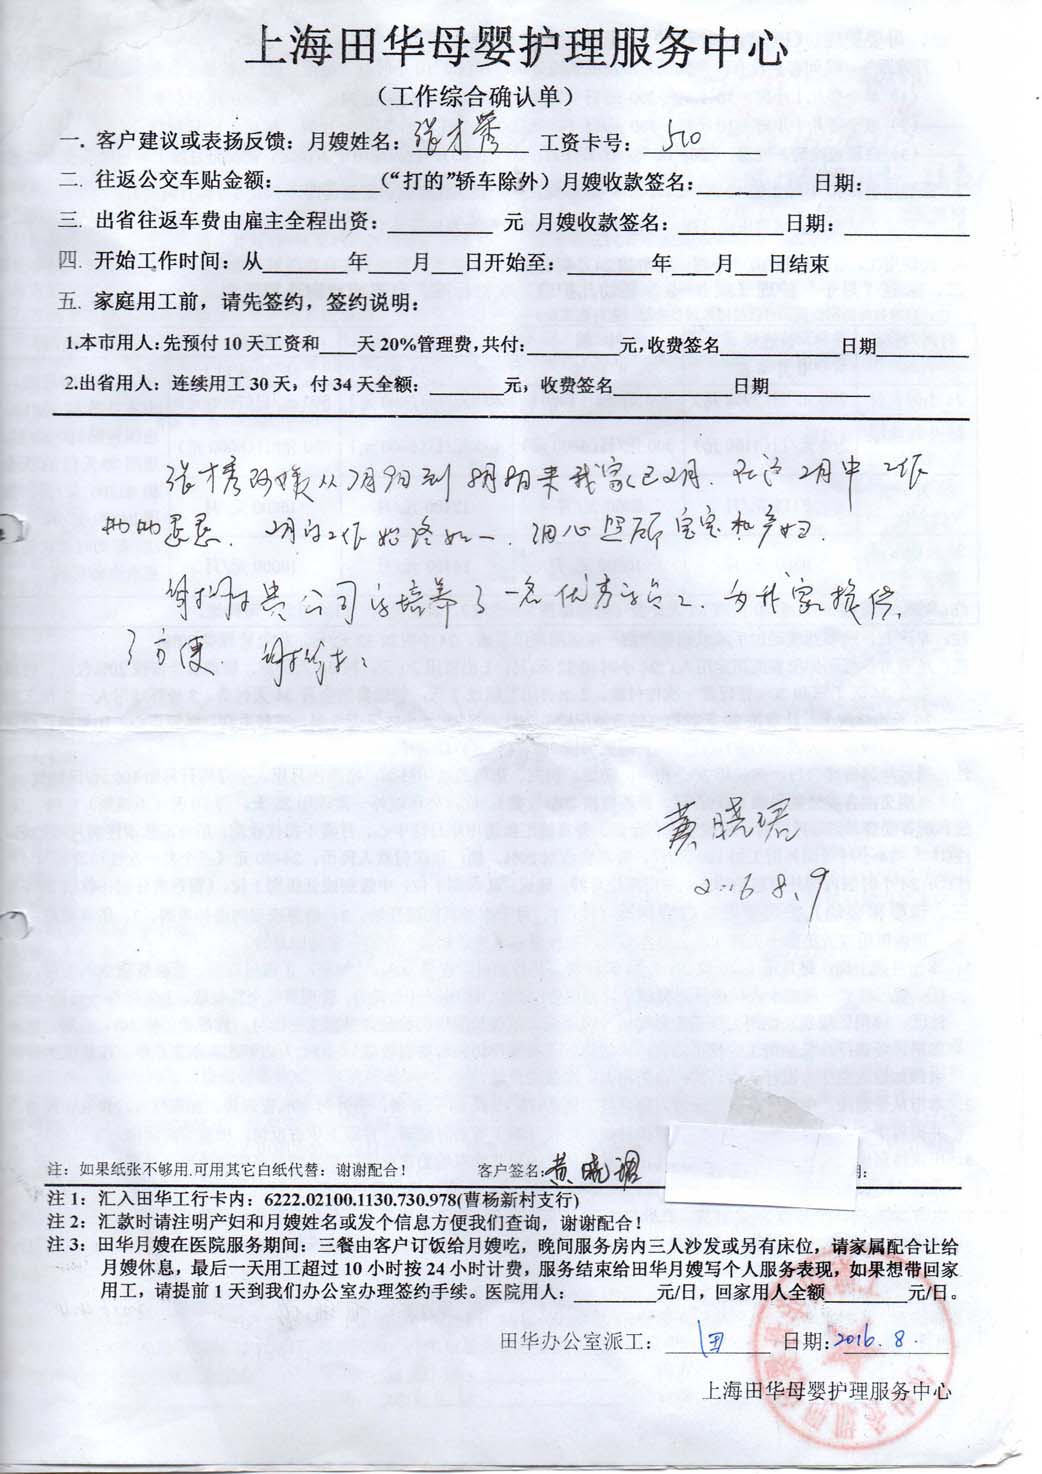 上海田华母婴护理服务中心
（工作综合确认单）
一．客户建议或表扬反馈：月嫂姓名：张才秀 工资卡号：500
二．往返公交车贴金额：________（“打的”轿车除外）月嫂收款签名：________ 日期：________
三．出省往返车费由雇主全程出资：________ 元 月嫂收款签名：________ 日期：________
四．开始工作时间：从________年____月____日开始至：________年____月____日结束
五．家庭用工前，请先签约，签约说明：
1.本市用人：先预付 10 天工资和____天 20%管理费，共付：________元，收费签名________日期________
2.出省用人：连续用工 30 天，付 34 天全额：________元，收费签名________日期________
张才秀阿姨从7月9日到 来我家已2月．在这2月中 工作
勤勤恳恳．2月的工作始终如一 细心照顾宝宝和产妇．
谢谢贵公司 培养了一名优秀 ，为我家提供
了方便 谢谢！
黄晓珺
2016.8.9
注：如果纸张不够用.可用其它白纸代替：谢谢配合！ 客户签名：黄晓珺
注 1：汇入田华工行卡内：6222.02100.1130.730.978(曹杨新村支行)
注 2：汇款时请注明产妇和月嫂姓名或发个信息方便我们查询，谢谢配合！
注 3：田华月嫂在医院服务期间：三餐由客户订饭给月嫂吃，晚间服务房内三人沙发或另有床位，请家属配合让给
月嫂休息，最后一天用工超过 10 小时按 24 小时计费，服务结束给田华月嫂写个人服务表现，如果想带回家
用工，请提前 1 天到我们办公室办理签约手续。医院用人：________元/日，回家用人全额________元/日。
田华办公室派工：田 日期：2016.8.
上海田华母婴护理服务中心